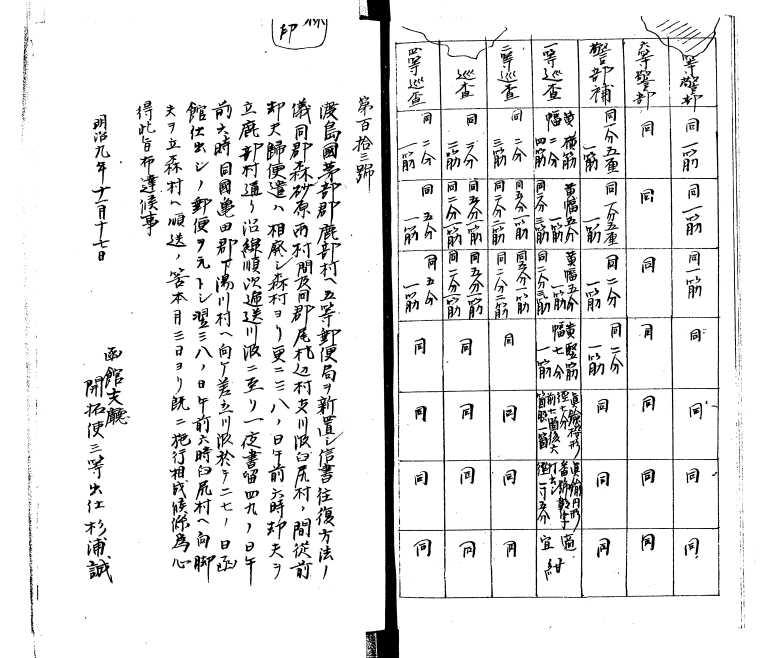 六等警部
警部補
一等巡査
二等巡査
巡査
四等巡査
同 一筋
同 一筋
同 一筋
同
同
同
同
同
同
同
同
同
同
同
同 一分五厘 一筋
同 二分 一筋
同 二分 一筋
同
同
同
黄横筋 幅二分 四筋
黄幅五分 一筋
同二分三筋
黄幅五分 一筋
同二分三筋
黄竪筋 幅七分 一筋
適宜 紺
同 二分 三筋
同五分一筋
同二分二筋
同五分一筋
同二分二筋
同
同
同
同
同 二分 二筋
同五分一筋
同二分一筋
同五分一筋
同二分一筋
同
同
同
同
同 二分 一筋
同 五分 一筋
同 五分 一筋
同
同
同
同
印
第百拾三號
渡島國茅部郡鹿部村ヘ五等郵便局ヲ新置シ信書往復方法ノ
儀同郡森砂原両村間及同郡尾札辺村支川汲臼尻村ノ間従前
却夫歸便遣ハ相廃シ森村ヨリ更ニ三八ノ日午前六時却夫ヲ
立鹿部村通リ沿線順次逓送川汲ニ至リ一夜書留四九ノ日午
前六時同國亀田郡下湯川村ヘ向ケ差立川汲於テ二七ノ日函
館仕出シノ郵便ヲ元トシ翌三八ノ日午前六時臼尻村ヘ向脚
夫ヲ立森村ヘ順送ノ筈本月三日ヨリ既ニ施行相成候條為心
得此旨布達候事
明治九年十一月十七日
函館支廳
開拓使三等出仕杉浦誠